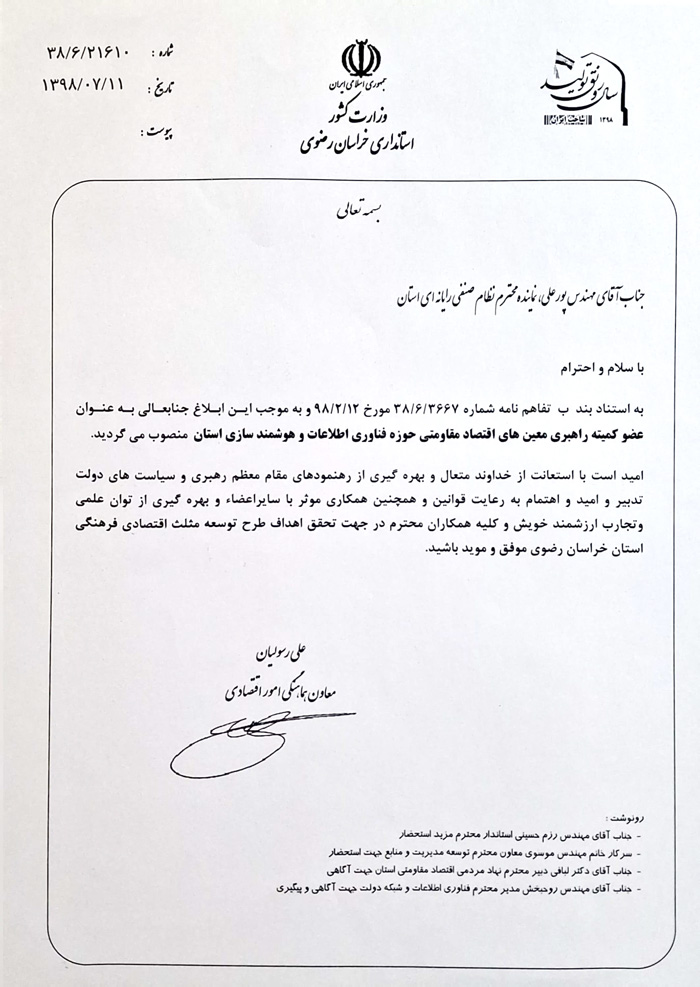 شماره : ۳۸/۶/۲۱۶۱۰
تاریخ : ۱۳۹۸/۰۷/۱۱
پیوست :
جمهوری اسلامی ایران
وزارت کشور
استانداری خراسان رضوی
سال رونق تولید
۱۳۹۸
بسمه تعالی
جناب آقای مهندس پورعلی، نماینده محترم نظام صنفی رایانه ای استان
با سلام و احترام
به استناد بند ب تفاهم نامه شماره ۳۸/۶/۳۶۶۷ مورخ ۹۸/۲/۱۲ و به موجب این ابلاغ جنابعالی به عنوان
عضو کمیته راهبری معین های اقتصاد مقاومتی حوزه فناوری اطلاعات و هوشمند سازی استان منصوب می گردید.
امید است با استعانت از خداوند متعال و بهره گیری از رهنمودهای مقام معظم رهبری و سیاست های دولت
تدبیر و امید و اهتمام به رعایت قوانین و همچنین همکاری موثر با سایراعضاء و بهره گیری از توان علمی
وتجارب ارزشمند خویش و کلیه همکاران محترم در جهت تحقق اهداف طرح توسعه مثلث اقتصادی فرهنگی
استان خراسان رضوی موفق و موید باشید.
علی رسولیان
معاون هماهنگی امور اقتصادی
رونوشت :
- جناب آقای مهندس رزم حسینی استاندار محترم مزید استحضار
- سرکار خانم مهندس موسوی معاون محترم توسعه مدیریت و منابع جهت استحضار
- جناب آقای دکتر لبافی دبیر محترم نهاد مردمی اقتصاد مقاومتی استان جهت آگاهی
- جناب آقای مهندس روحبخش مدیر محترم فناوری اطلاعات و شبکه دولت جهت آگاهی و پیگیری